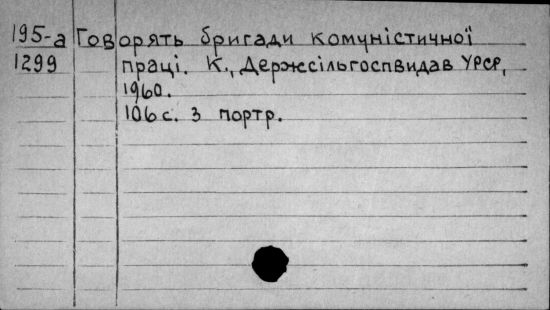 195-а Говорять бригади комуністичної
1299 праці. К., Держсільгоспвидав УРСР,
1960.
106 с. з портр.